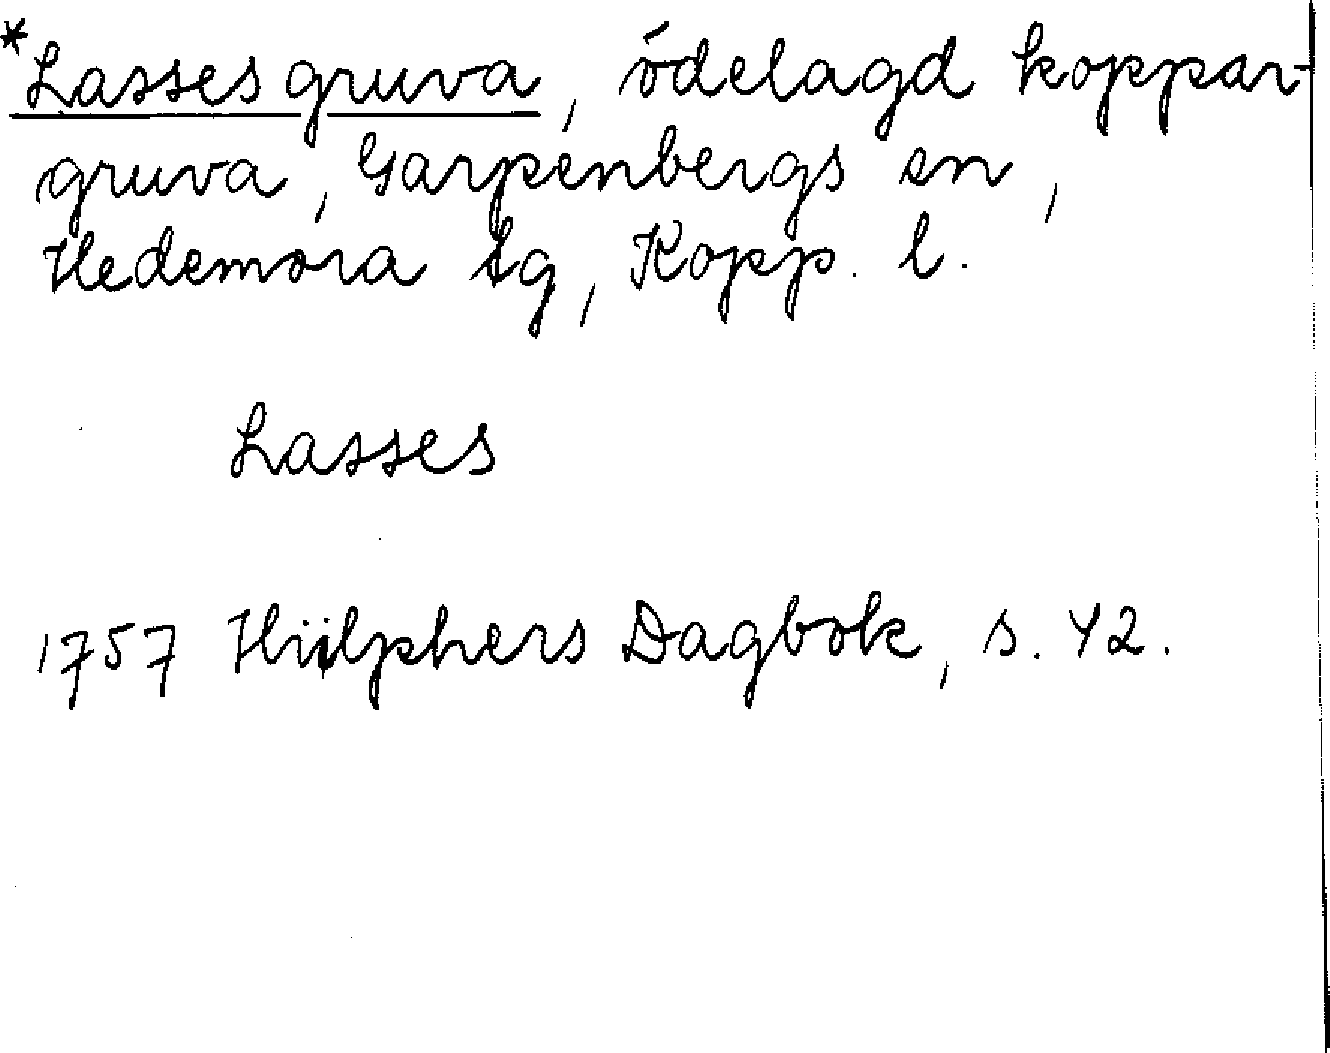 *Lasses gruva, ödelagd koppar-
gruva, Garpenbergs sn,
Hedemora tg, Kopp. l.
Lasses
1757 Hülphers Dagbok, s. 42.